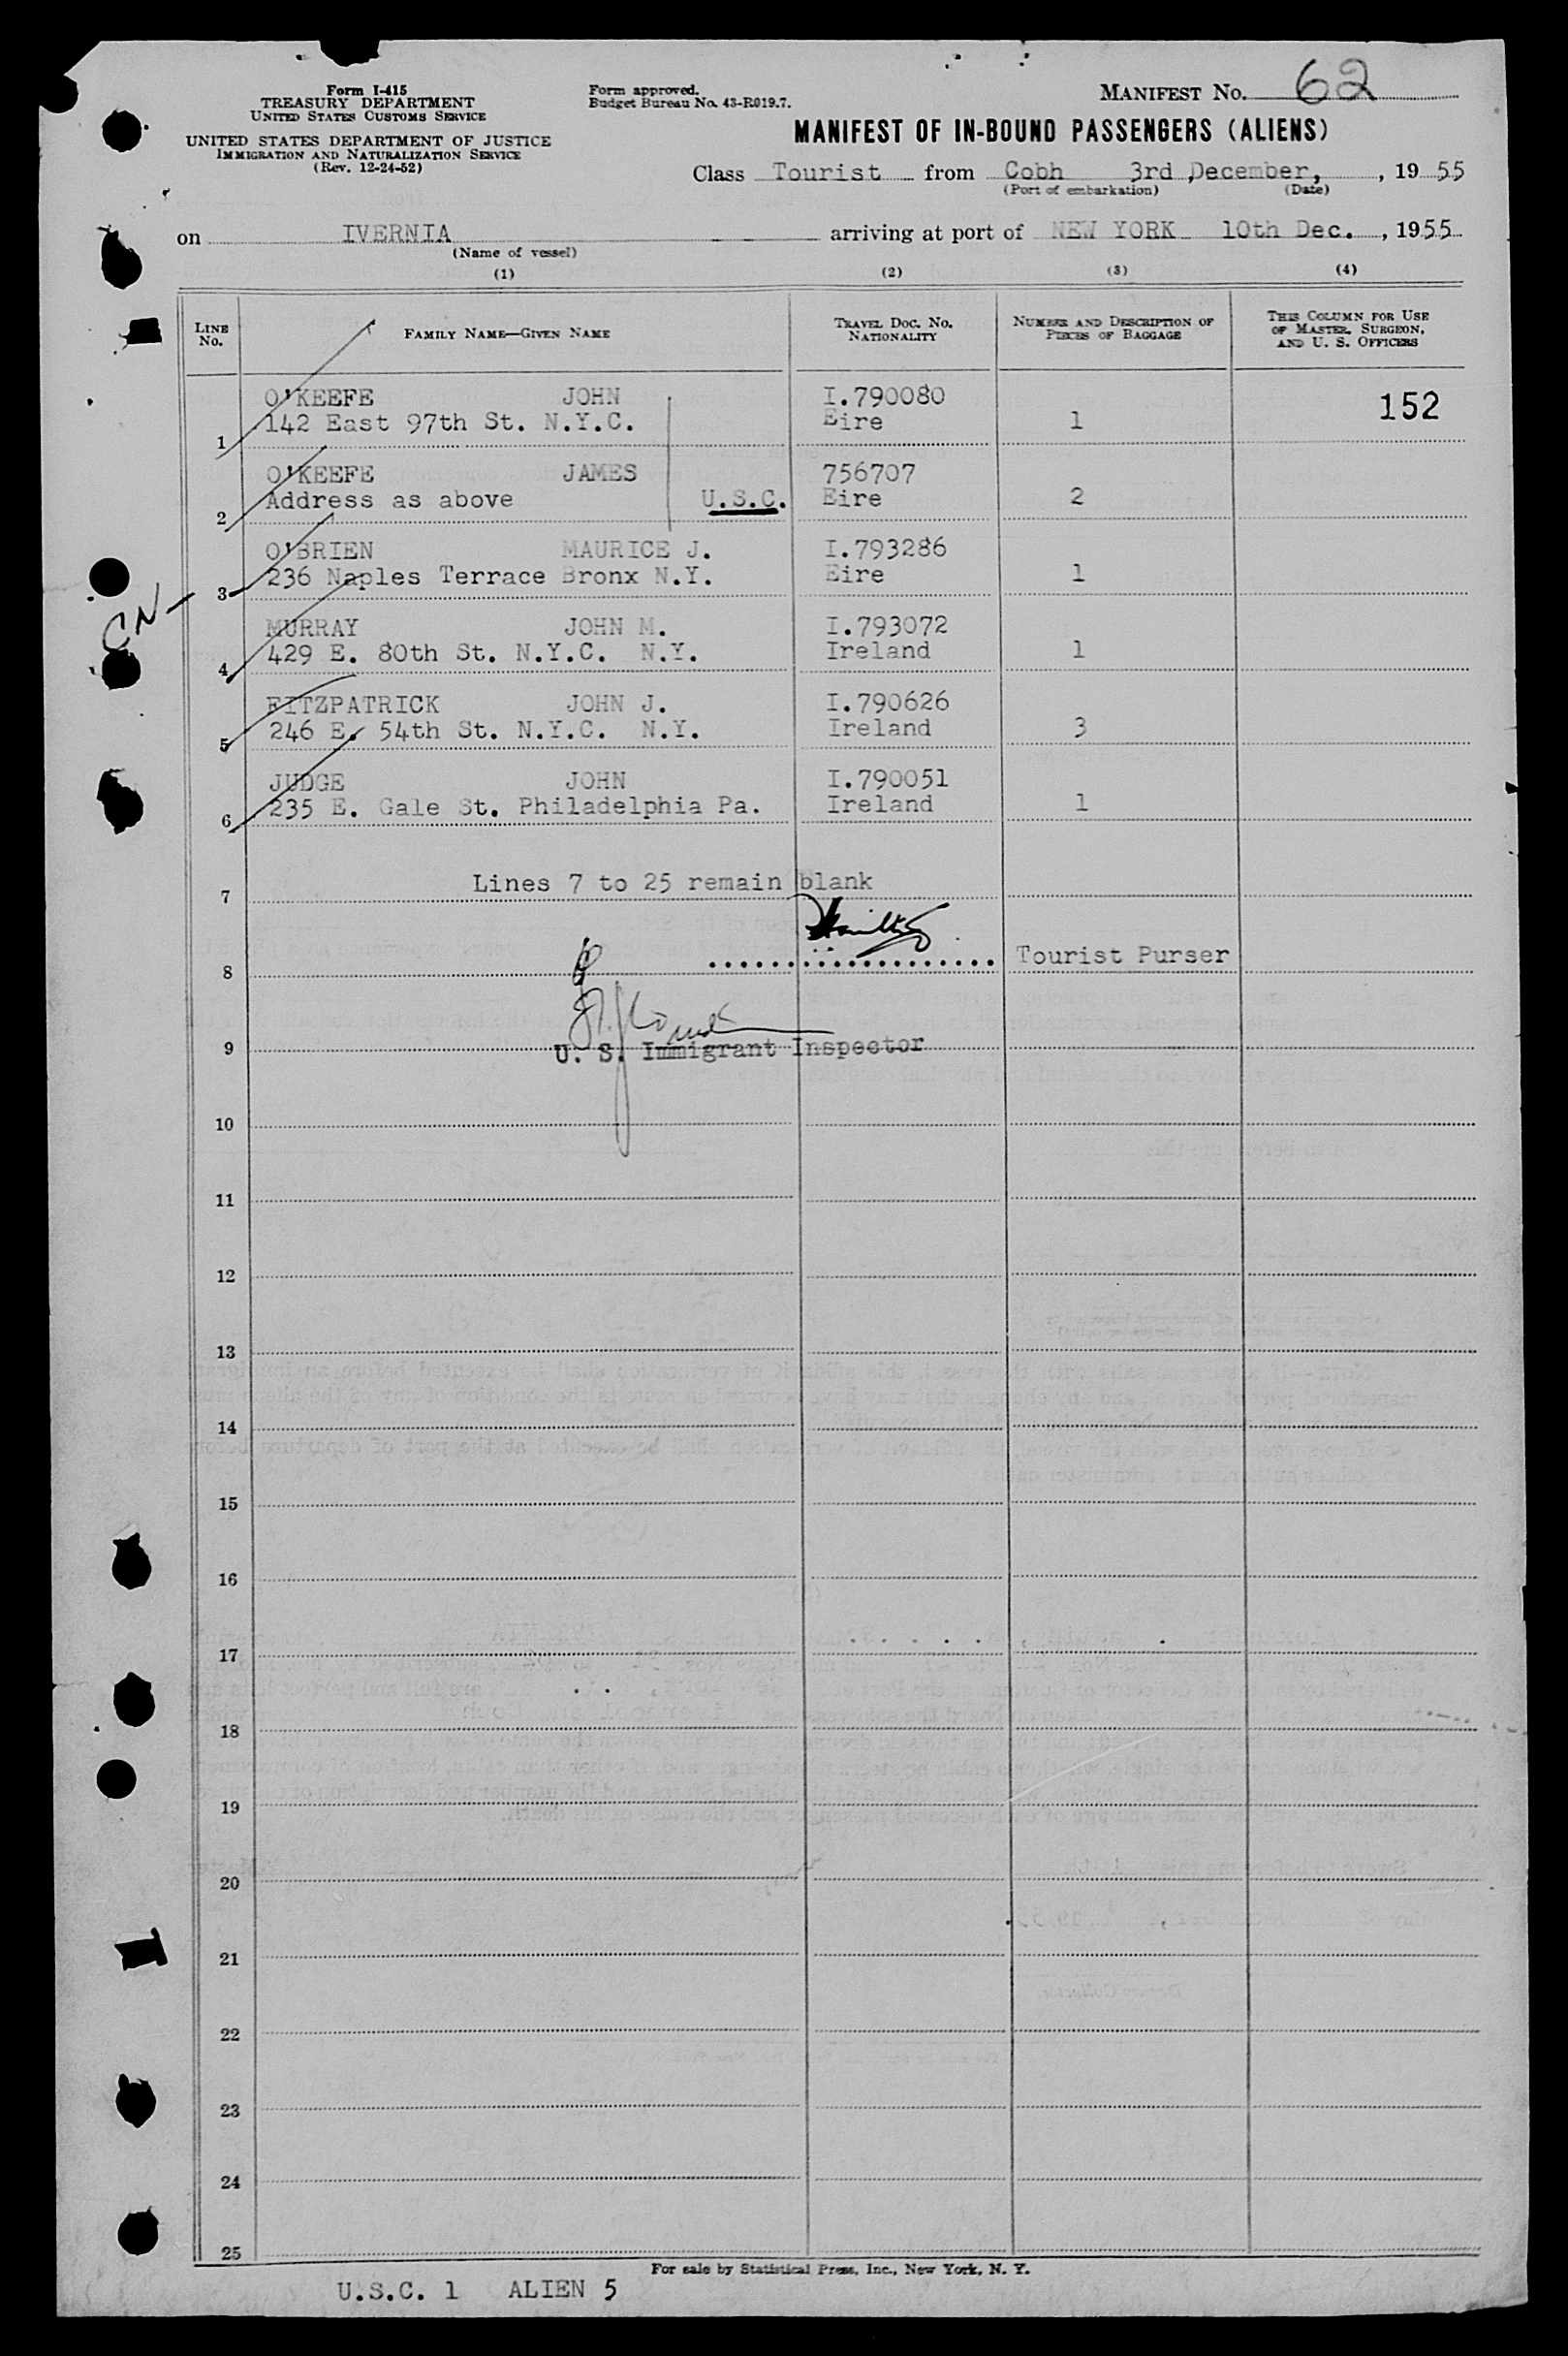 Form I-415
TREASURY DEPARTMENT
UNITED STATES CUSTOMS SERVICE
UNITED STATES DEPARTMENT OF JUSTICE
IMMIGRATION AND NATURALIZATION SERVICE
(Rev. 12-24-52)
Form approved.
Budget Bureau No. 43-R019.7.
MANIFEST NO. 62
MANIFEST OF IN-BOUND PASSENGERS (ALIENS)
Class Tourist from Cobh 3rd December, , 19 55
(Port of embarkation) (Date)
on IVERNIA arriving at port of NEW YORK 10th Dec. , 1955
(Name of vessel)
(1) (2) (3) (4)
LINE No. FAMILY NAME—GIVEN NAME TRAVEL DOC. NO. NATIONALITY NUMBER AND DESCRIPTION OF PIECES OF BAGGAGE THIS COLUMN FOR USE OF MASTER, SURGEON, AND U. S. OFFICERS
O'KEEFE JOHN I.790080 152
1 142 East 97th St. N.Y.C. Eire 1
O'KEEFE JAMES 756707
2 Address as above U.S.C. Eire 2
O'BRIEN MAURICE J. I.793286
3 236 Naples Terrace Bronx N.Y. Eire 1
MURRAY JOHN M. I.793072
4 429 E. 80th St. N.Y.C. N.Y. Ireland 1
FITZPATRICK JOHN J. I.790626
5 246 E. 54th St. N.Y.C. N.Y. Ireland 3
JUDGE JOHN I.790051
6 235 E. Gale St. Philadelphia Pa. Ireland 1
7 Lines 7 to 25 remain blank
8 Tourist Purser
9 U. S. Immigrant Inspector
10
11
12
13
14
15
16
17
18
19
20
21
22
23
24
25
For sale by Statistical Press, Inc., New York, N. Y.
U.S.C. 1 ALIEN 5